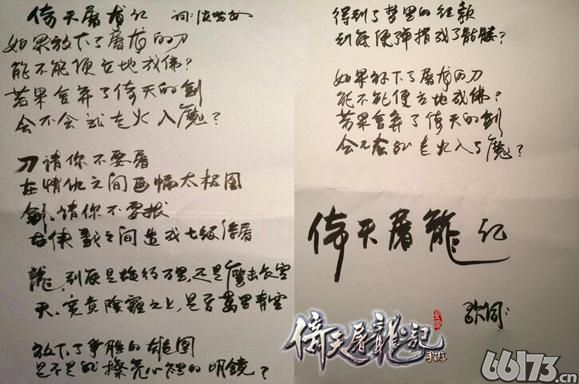 倚天屠龙记 词:
如果放下了屠龙的刀
能不能便立地成佛?
若果舍弃了倚天的剑
会不会就走火入魔?
刀请你不要屠
在情仇之间画幅太极图
剑,请你不要拔
在侠义之间造成七级浮屠
龙,到底是 万里,还是 长空
天,究竟阴霾之上,是否万里青空
放下了争胜的雄图
是不是能擦亮心裡的明镜?
得到了梦里的红颜
到底便弹指成了骷髅?
如果放下了屠龙的刀
能不能便立地成佛?
若果舍弃了倚天的剑
会不会就走火入了魔?
倚天屠龍记
歌词
倚天屠龍記
手游
66173.cn